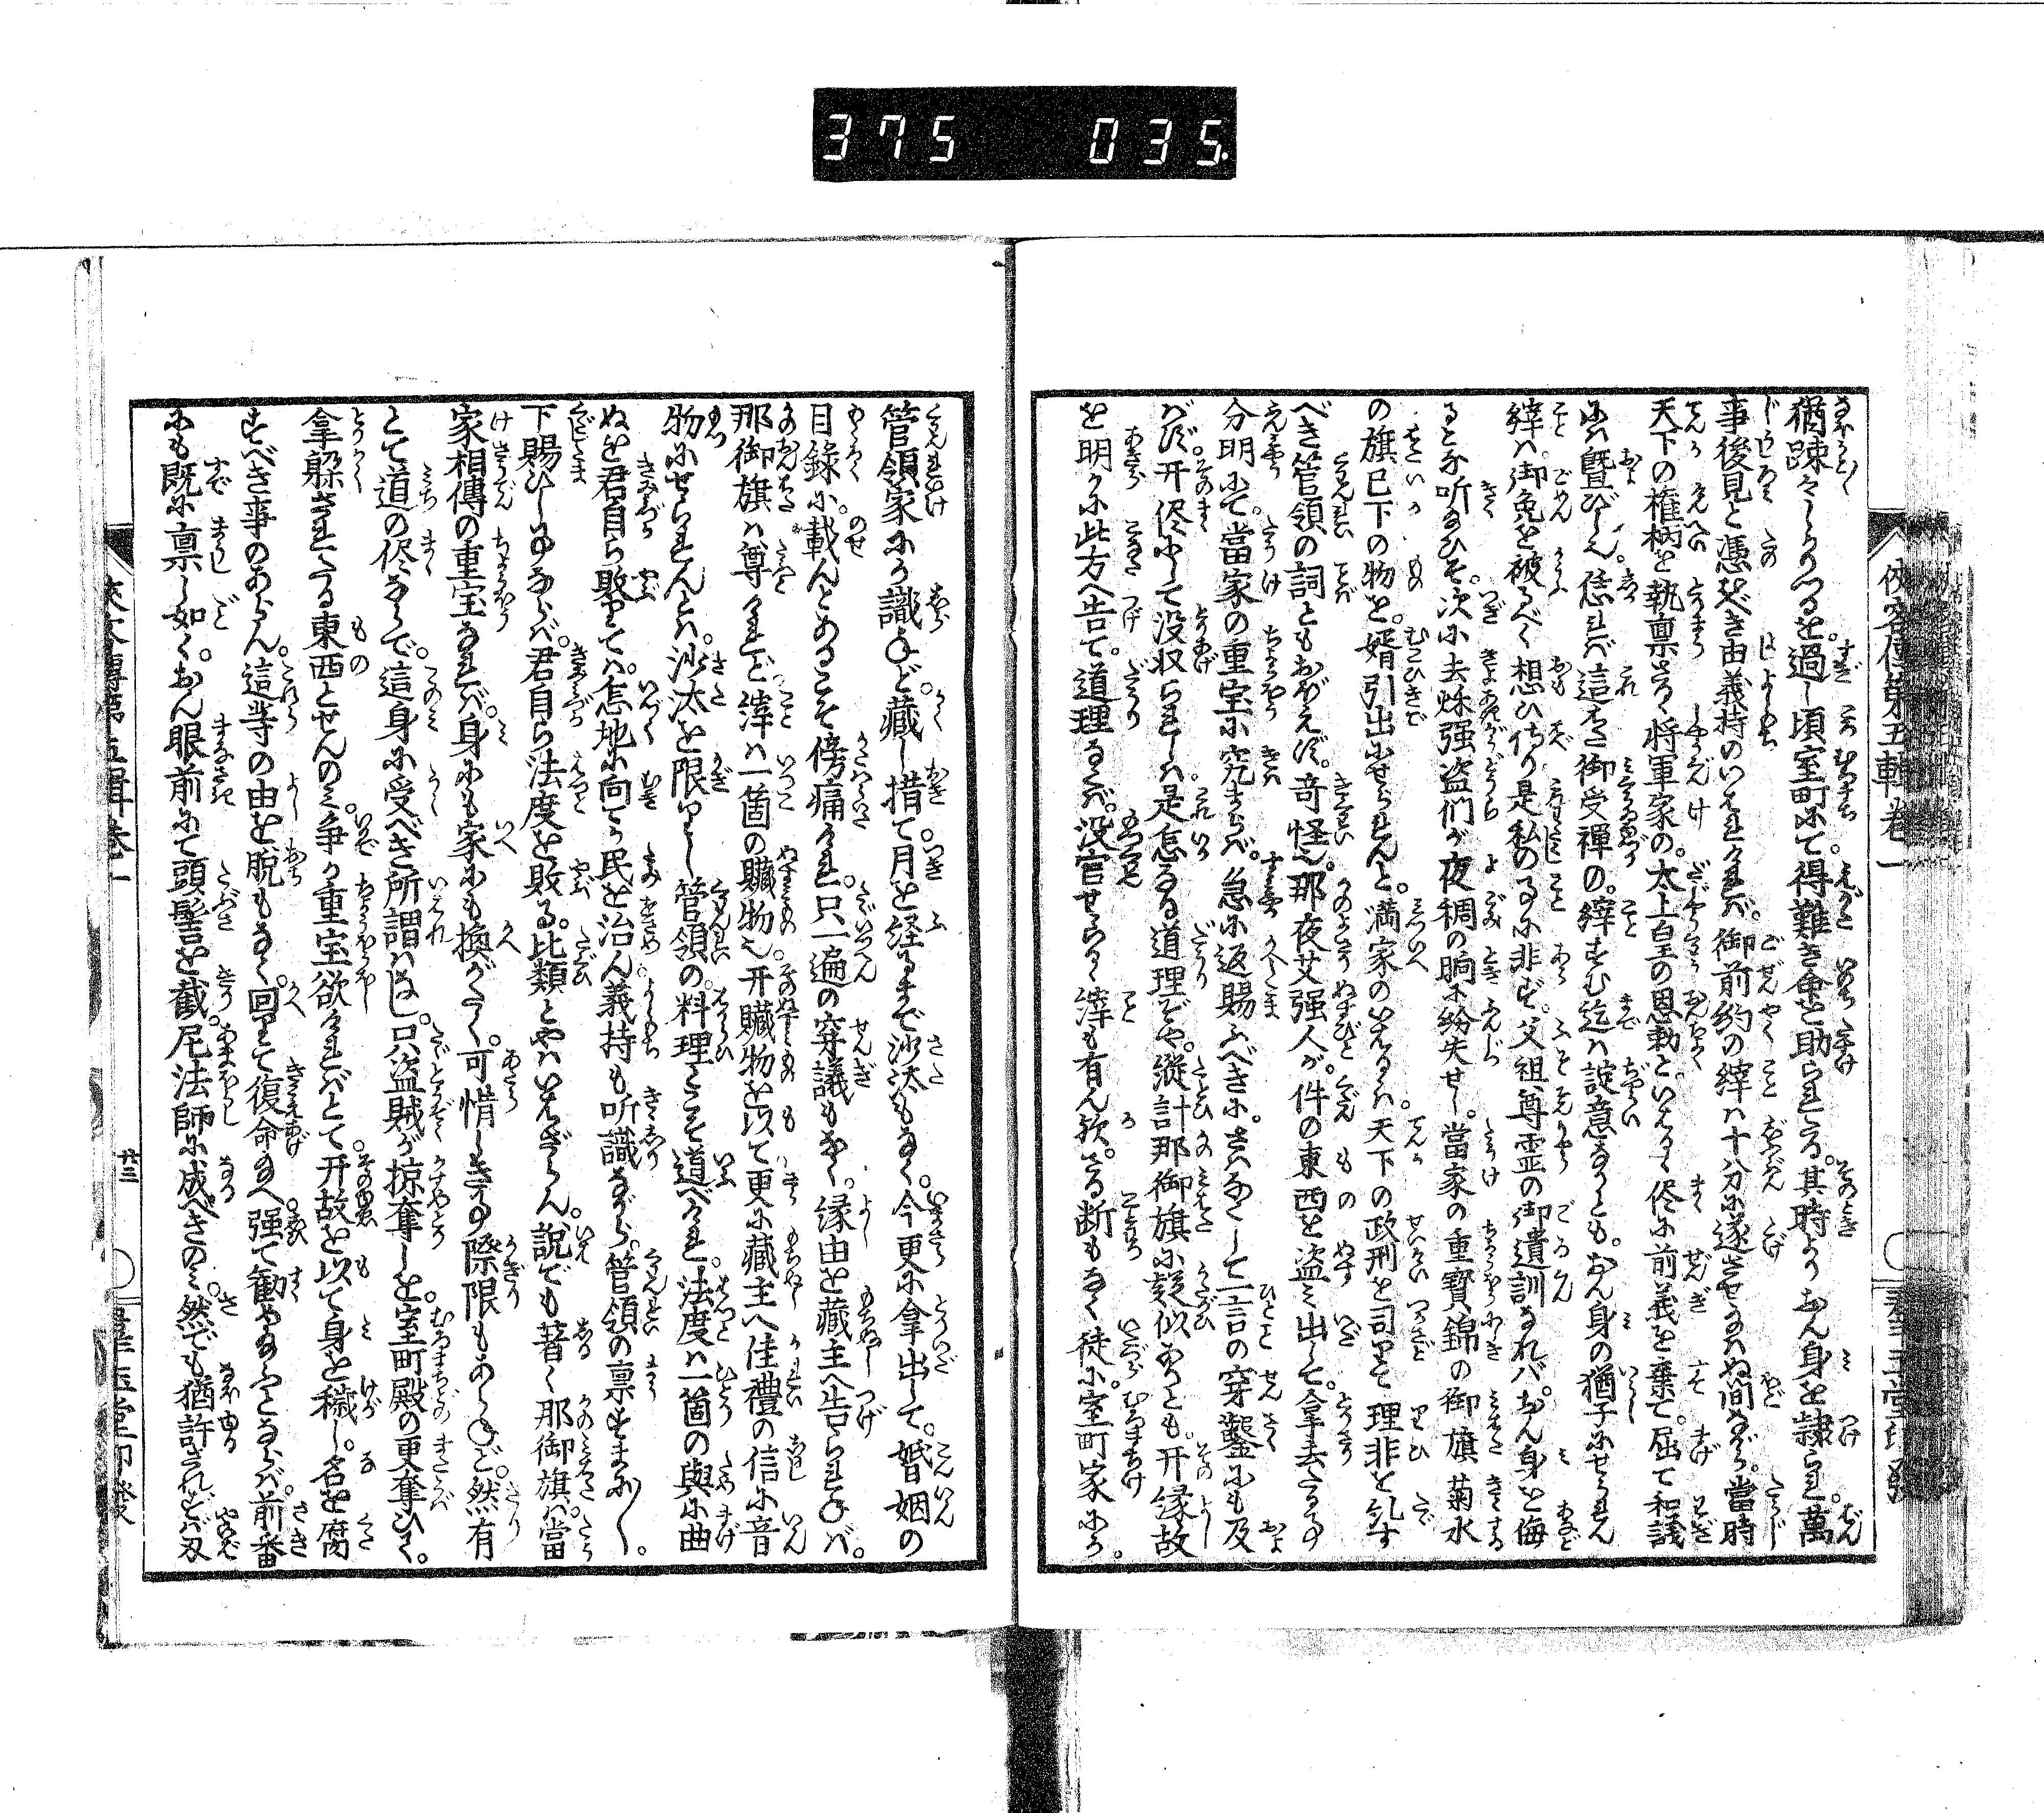 375 035
俠客傳第五輯巻一
猶踈々しかりつるを。過し頃室町にて。得難き命を助られたる。其時よりおん身を隷られ。萬
事後見と憑むべき由義持のいはれけれバ。御前約の縡ハ十分に遂させ給ハぬ間ながら。當時
天下の権柄を執稟給ふ。将軍家の。太上皇の恩勅と。いはるゝ侭に前義を棄て。屈て和議
にハ曁びしに。恁れバ這たび御受禅の。縡すむ迄ハ諚意なりとも。おん身の猶子にせられん
縡ハ。御免を被るべく想ひ侍り是私の事に非ず。父祖尊霊の御遺訓なれバ。おん身を侮
ると な听給ひそ。次に去秌强盗們が夜稠の晌に紛失せし。當家の重寳錦の御旗菊水
の旗已下の物を。婿引出にせられんと。満家のいはるゝハ。天下の政刑を司りて理非を糺す
べき管領の詞ともおぼえず。奇怪也。那夜艾强人が。件の東西を盗み出して。拿去たる事
分明にて。當家の重宝に究まらバ。急に返賜ふべきに。さハなくして一言の穿鑿にも及
ばず。开侭にして没収られしハ是怎なる道理ぞや。縦計那御旗に疑似ありとも。开縁故
を明かに此方へ告て。道理ならバ。没官せらるゝ縡も有ん欤。さる断もなく徒に室町家にか。
管領家にか識ねど。藏し措て。月を経るまで沙汰もなく。今更に拿出して。婚姻の
目録に。載んとあるこそ傍痛けれ。只一遍の穿議もなく。縁由を藏主へ告られずバ。
那御旗ハ尊けれど縡ハ一箇の贓物也。开贓物を以て更に藏主へ佳禮の信に音
物にせられんとハ。沙汰を限りし管領の。料理とこそ道べけれ。法度ハ一箇の與に曲
ぬを君自ら敗りてハ。怎地に向てか民を治ん。義持も听識ながら。管領の禀すまに〳〵。
下賜ひしにあらバ。君自ら法度を敗る。比類とやハいはざらん。説でも著く那御旗ハ。當
家相傳の重宝なれバ。身にも家にも換がたく。可惜しき事の際限もあらねど。然有
とて道の侭ならで。這身に受べき所謂ハなし。只盗賊が掠奪しを。室町殿の更奪ひく。
拿躱されたる東西とせんのミ。争か重宝欲けれバとて。开故を以て身を穢し。名を腐
すべき事のあらん。這等の由を脱もなく。回りて復命給へ。强て勸め給ふとならバ。前番
にも既に禀し如く。おん眼前にて頭髻を截。尼法師に成べきのミ。然でも猶許されずバ刃
俠客傳第五輯巻一
廿三
群玉堂印發